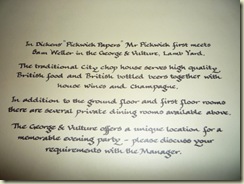 In Dickens' "Pickwick Papers" Mr Pickwick first meets
Sam Weller in the George & Vulture, Lamb Yard.
The traditional City chop house serves high quality
British food and British bottled beers together with
house wines and Champagne.
In addition to the ground floor and first floor rooms
there are several private dining rooms available above.
The George & Vulture offers a unique location for a
memorable evening party - please discuss your
requirements with the Manager.